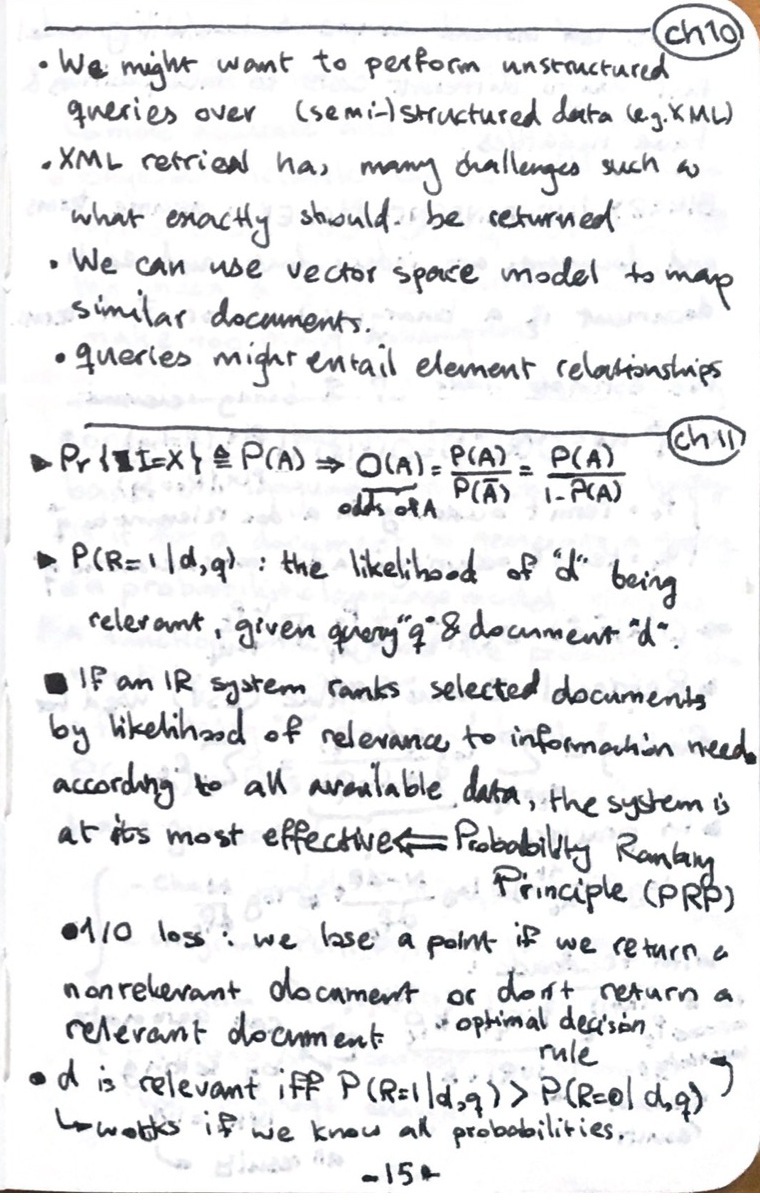 ch10
• We might want to perform unstructured
queries over (semi-)structured data (e.g. XML)
• XML retrieval has many challenges such as
what exactly should be returned
• We can use vector space model to map
similar documents.
• queries might entail element relationships
ch11
► Pr{I=X} ≜ P(A) ⇒ O(A) = P(A)/P(Ā) = P(A)/1-P(A)
odds of A
► P(R=1|d,q) : the likelihood of "d" being
relevant, given query "q" & document "d".
■ If an IR system ranks selected documents
by likelihood of relevance to information need
according to all available data, the system is
at its most effective ⇐ Probability Ranking
Principle (PRP)
• 1/0 loss : we lose a point if we return a
nonrelevant document or don't return a
relevant document
• optimal decision
rule
• d is relevant iff P(R=1|d,q) > P(R=0|d,q)
↳ works if we know all probabilities.
-15-